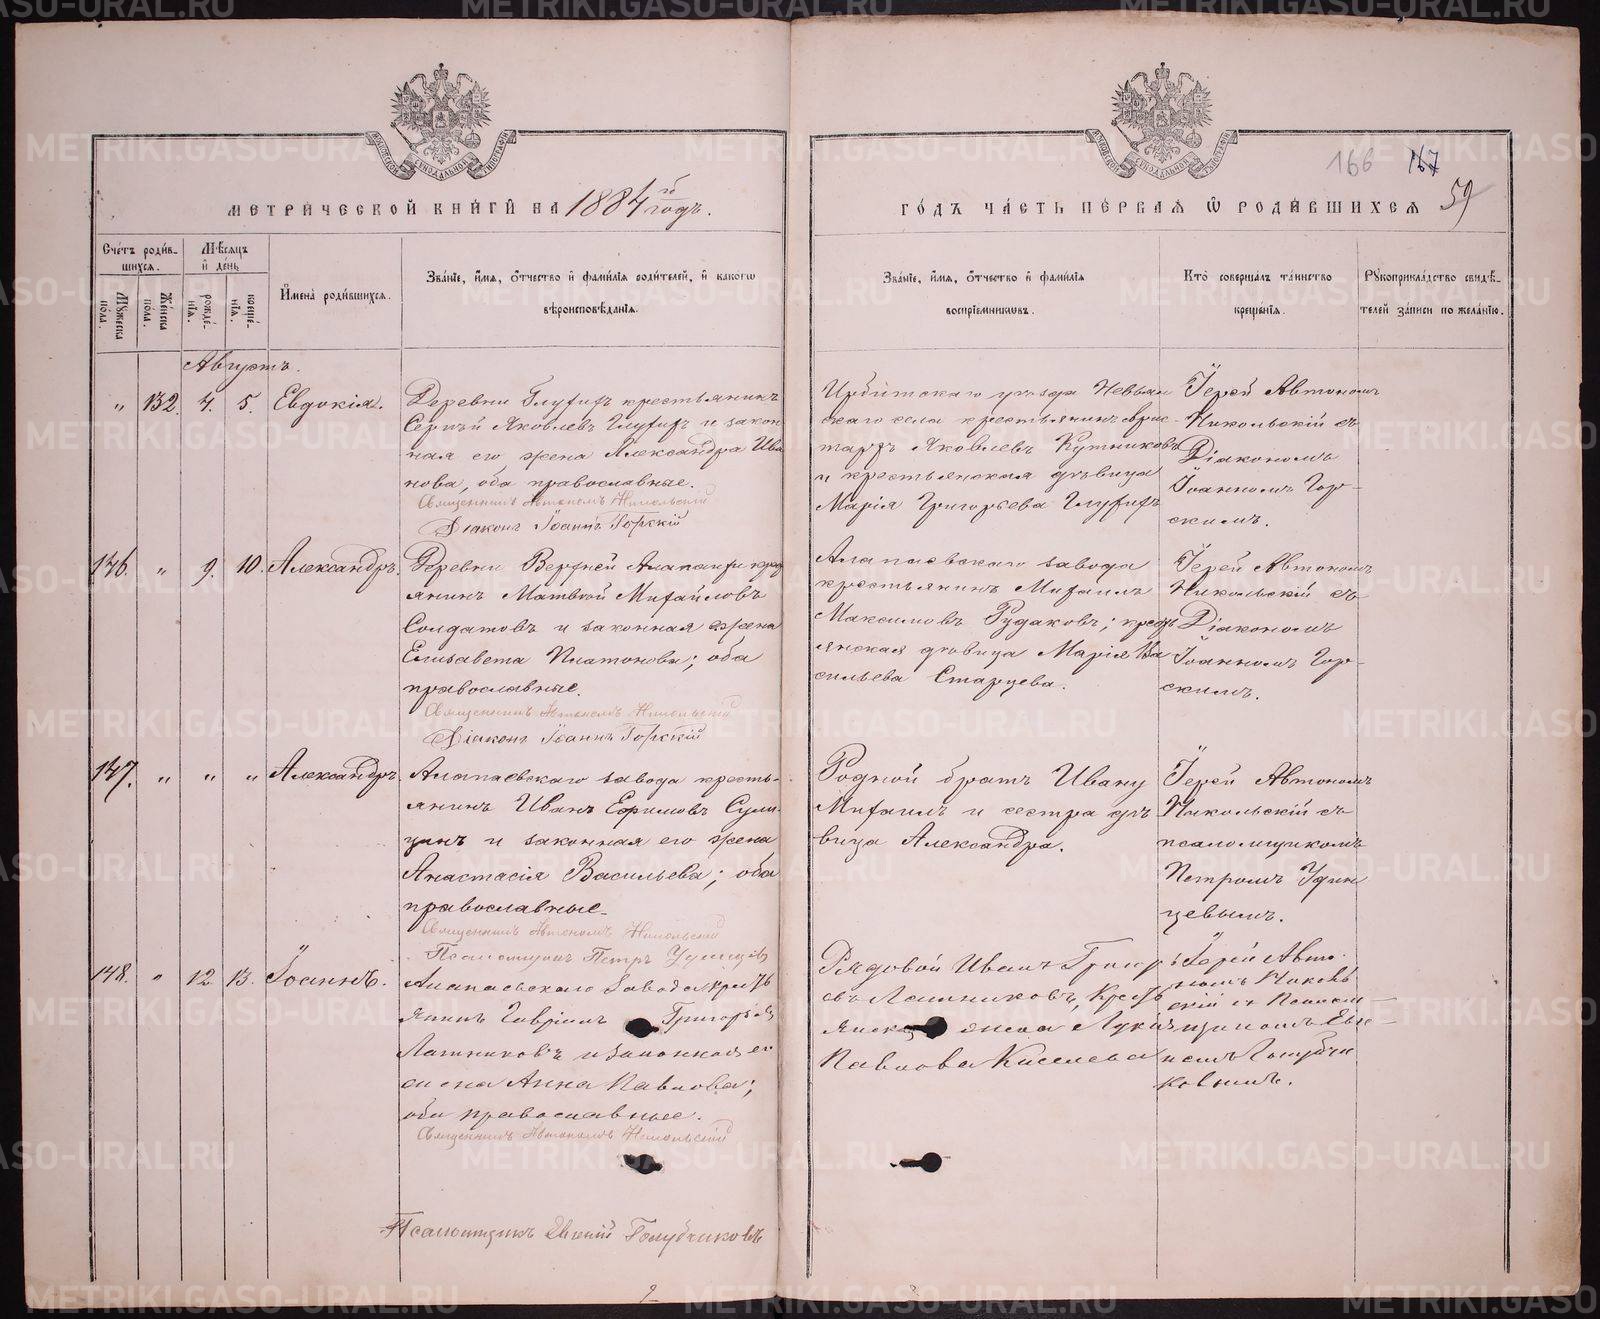 166 167
59
МЕТРИЧЕСКОЙ КНИГИ НА 1884 годъ.
ГОДЪ ЧАСТЬ ПЕРВАЯ Ѿ РОДИВШИХСЯ
Счетъ родив-
шихся.
Мѣсяцъ
и день
Мужеска
пола.
Женска
пола.
рожде-
нія.
креще-
нія.
Имена родившихся.
Званіе, имя, отчество и фамилія родителей, и какогѡ
вѣроисповѣданія.
Званіе, имя, отчество и фамилія
воспріемникѡвъ.
Кто совершалъ таинство
крещенія.
Рукоприкладство свидѣ-
телей записи по желанію.
Августъ.
" 132. 4. 5. Евдокія.
Деревни Глухихъ крестьянинъ
Сергѣй Яковлевъ Глухихъ и закон
ная его жена Александра Ива
нова, оба православные.
Священникъ Автономъ Никольскій
Діаконъ Іоаннъ Горскій
Ирбитскаго уѣзда Невьян
скаго села крестьянинъ
Яковлевъ Кутниковъ
и крестьянская дѣвица
Марія Григорьева Глухихъ
Іерей Автономъ
Никольскій съ
Діакономъ
Іоанномъ Гор-
скимъ.
146. " 9. 10. Александръ.
Деревни Верхней Алапаихи крест
янинъ Матвѣй Михайловъ
Солдатовъ и законная жена
Елисавета Платонова; оба
православные.
Священникъ Автономъ Никольскій
Діаконъ Іоаннъ Горскій
Алапаевскаго завода
крестьянинъ Михаилъ
Максимовъ Рудаковъ; крест
янская дѣвица Марія Ва
сильева Старцева.
Іерей Автономъ
Никольскій съ
Діакономъ
Іоанномъ Гор-
скимъ.
147. " " " Александръ
Алапаевскаго завода кресть-
янинъ Иванъ Ефимовъ
и законная его жена
Анастасія Васильева; оба
православные.
Священникъ Автономъ Никольскій
Псаломщикъ Петръ Удинцевъ
Родной братъ Ивану
Михаилъ и сестра дѣ
вица Александра.
Іерей Автономъ
Никольскій съ
псаломщикомъ
Петромъ Удин
цевымъ.
148. " 12 13. Іоаннъ.
Алапаевскаго завода крестъ
янинъ Гавріилъ Григорьев
Лашниковъ и законная ег
жена Анна Павлова;
оба православные.
Священникъ Автономъ Никольскій
Псаломщикъ Евгеній Голубчиковъ
Рядовой Иванъ Григорь
евъ Лашниковъ, крест
янска жена Лукія
Павлова Киселева
Іерей Авто
номъ Николь
скій съ Псалом
щикомъ Евге
ніемъ Голубчи
ковымъ.
METRIKI.GASO-URAL.RU